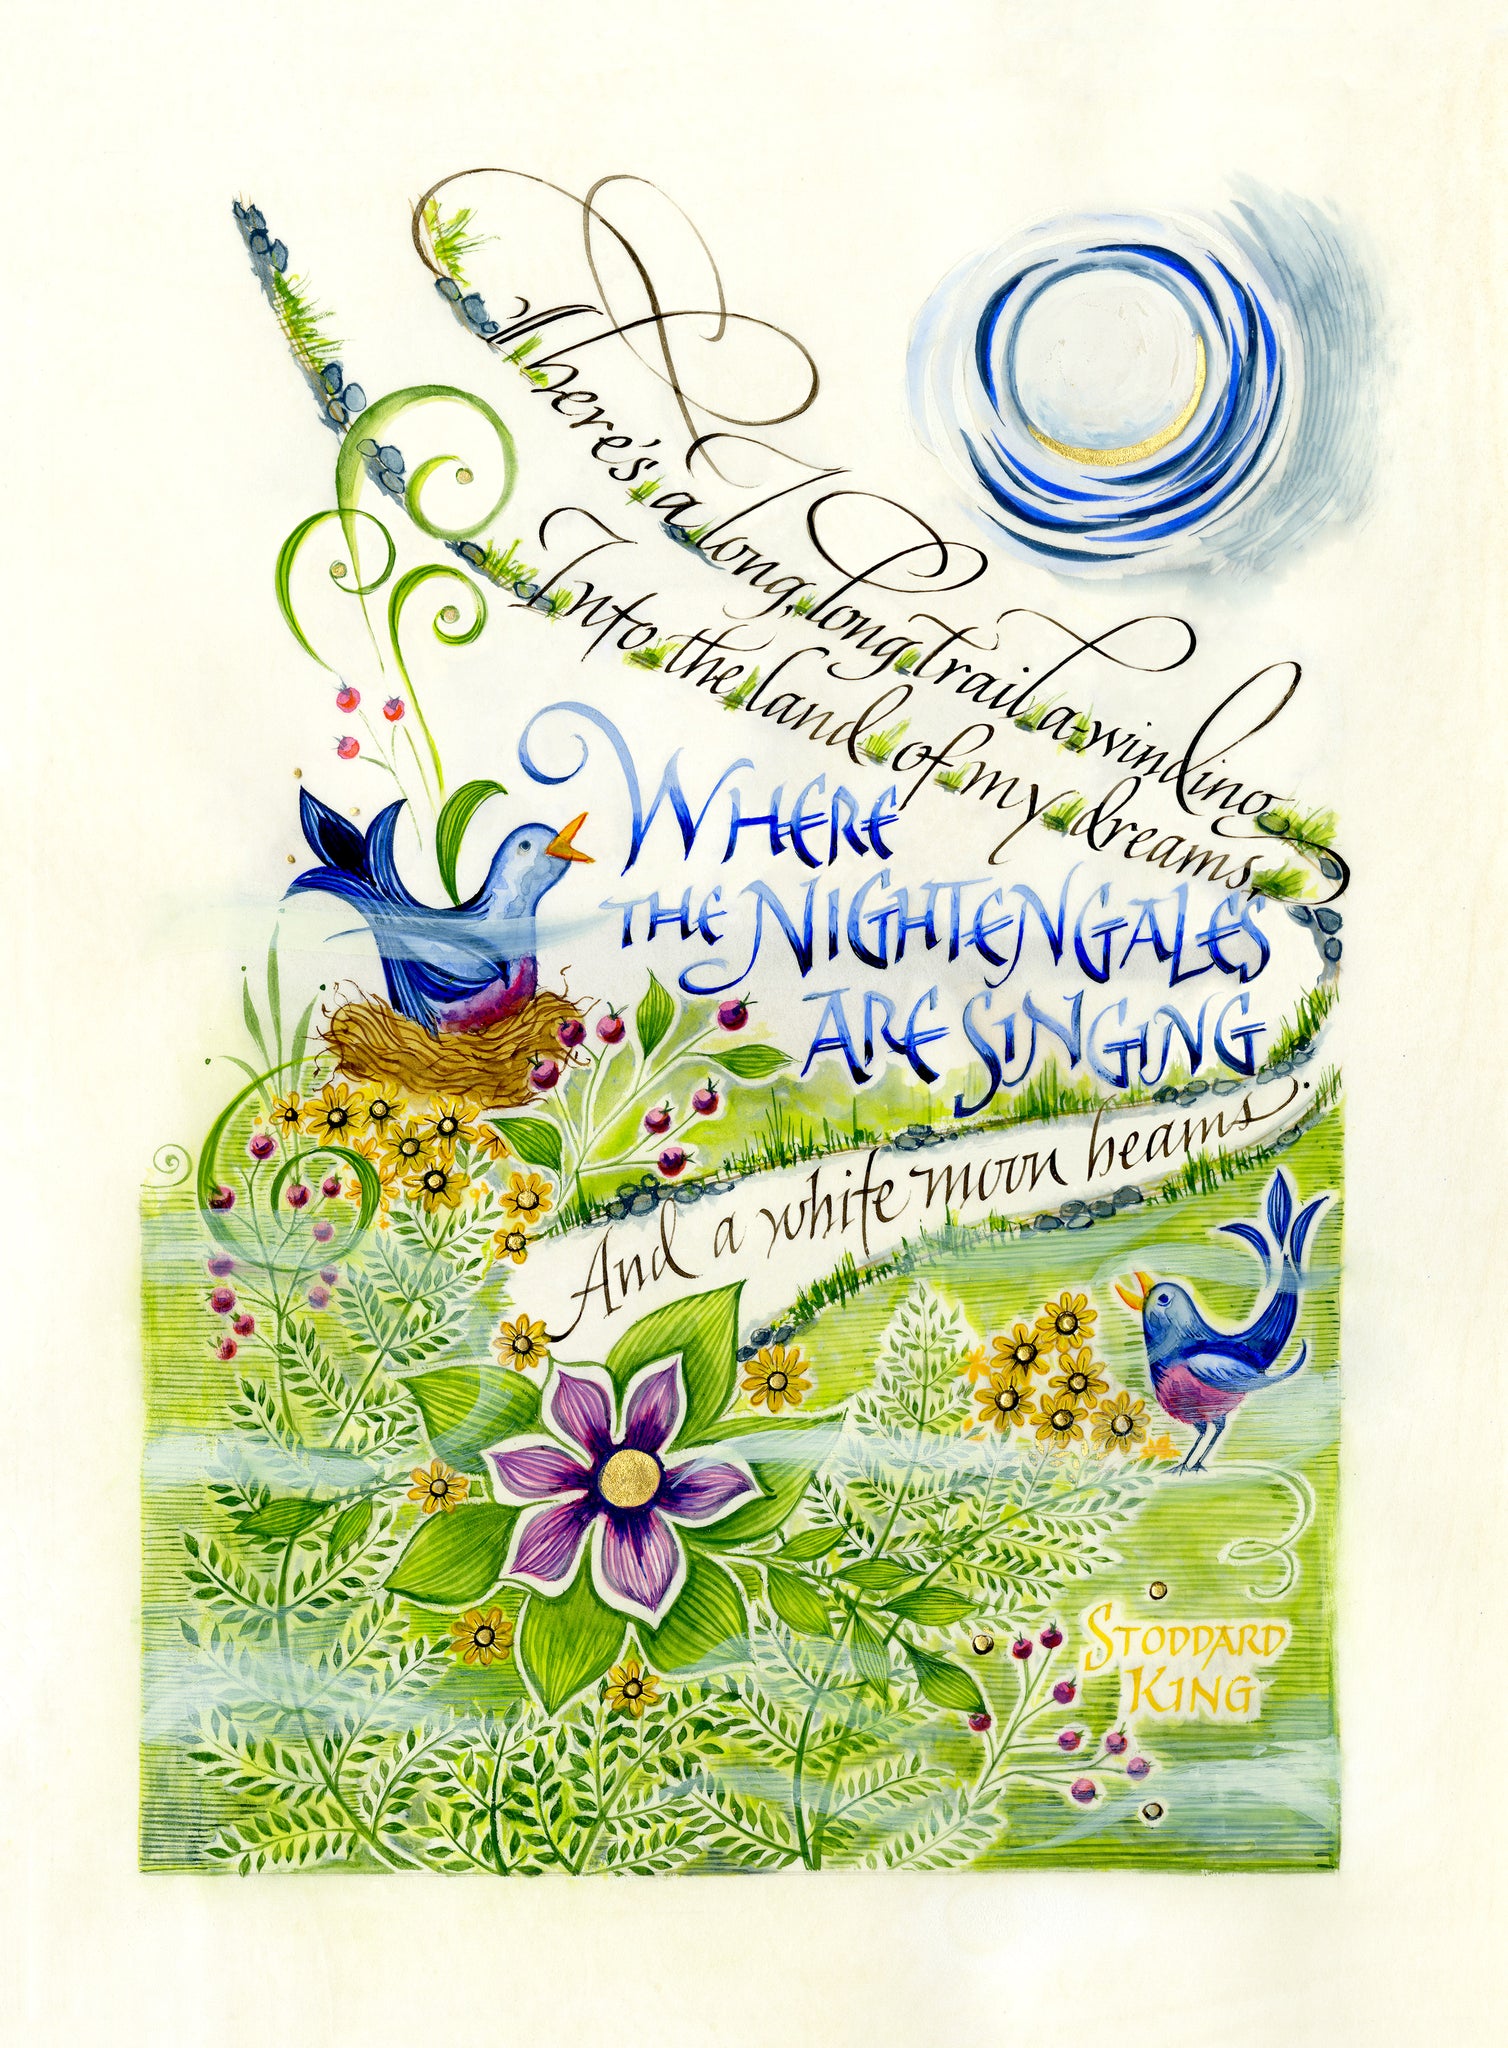 There's a long, long trail a-winding
Into the land of my dreams,
WHERE
THE NIGHTENGALES
ARE SINGING
And a white moon beams.
STODDARD
KING